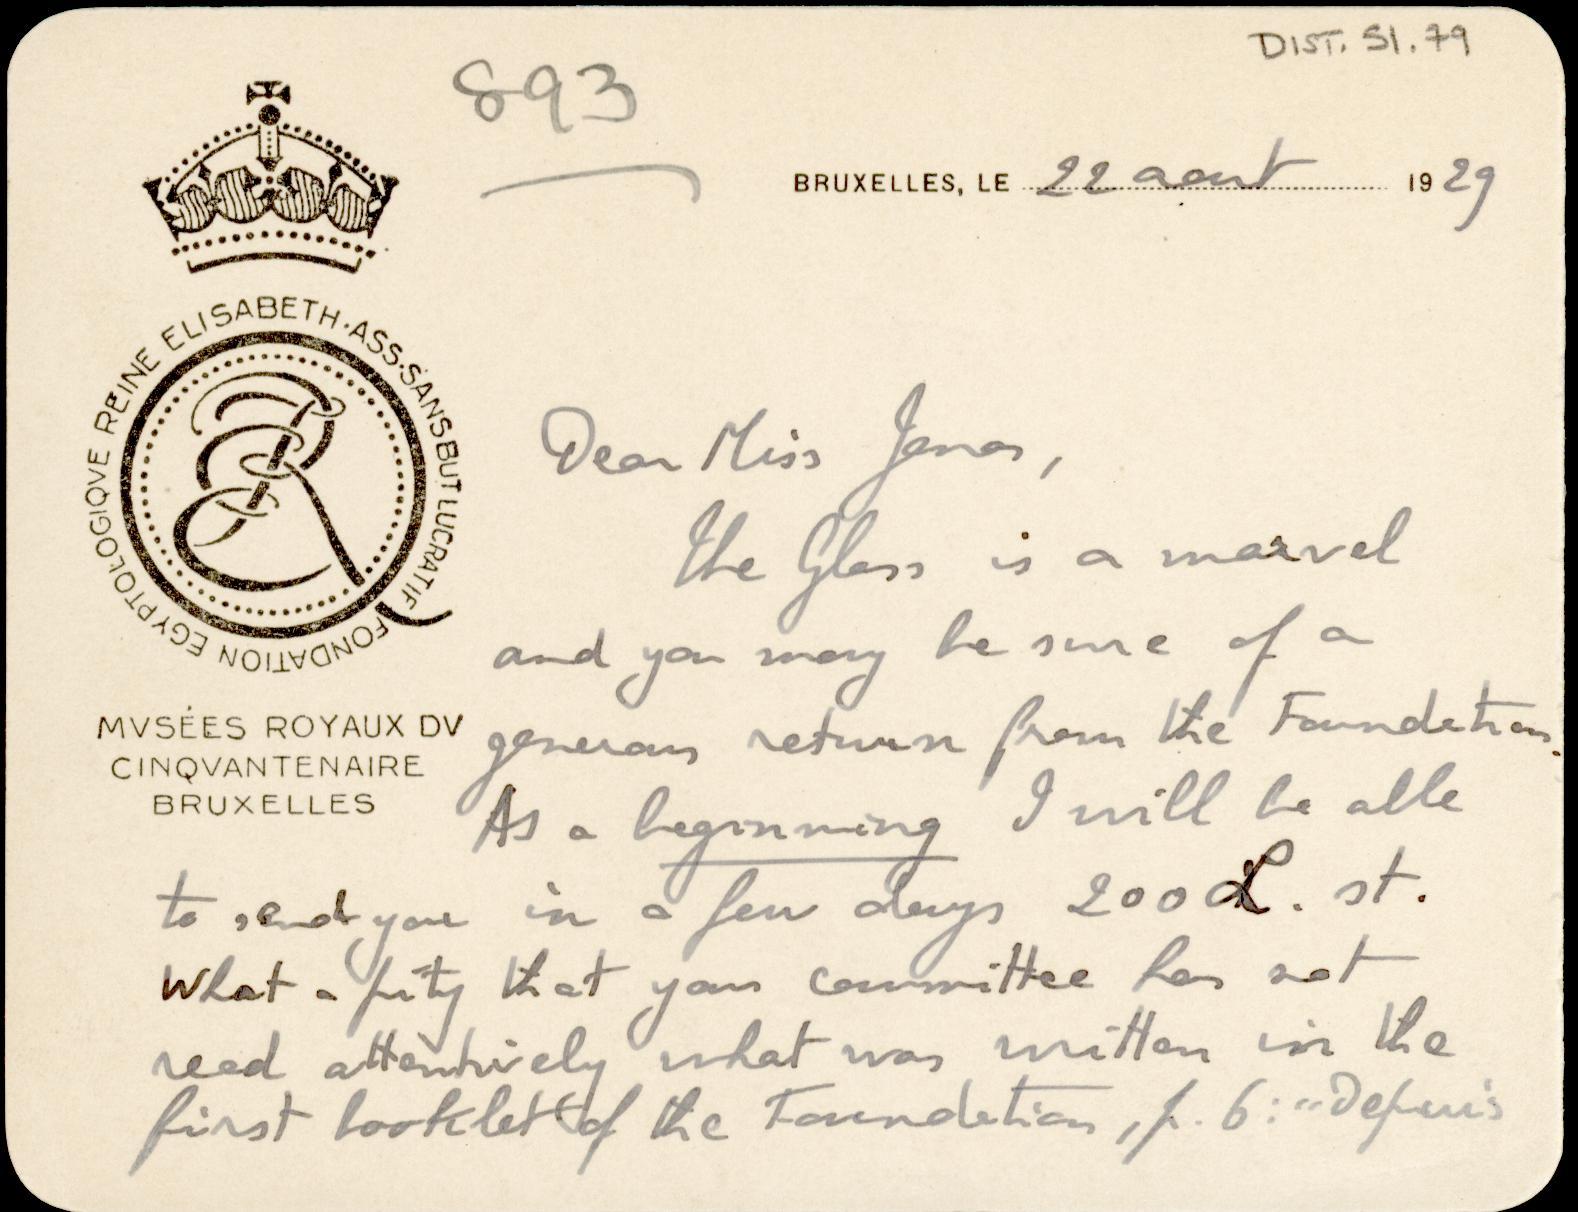 DIST. 51.79
893
BRUXELLES, LE 22 aout 1929
FONDATION EGYPTOLOGIQVE REINE ELISABETH · ASS. SANS BUT LUCRATIF
MVSÉES ROYAUX DV
CINQVANTENAIRE
BRUXELLES
Dear Miss Jonas,
The Glass is a marvel
and you may be sure of a
generous return from the Foundation.
As a beginning I will be able
to send you in a few days 200 £. st.
What a pity that your committee has not
read attentively what was written in the
first booklet of the Foundation, p. 6: "Depuis